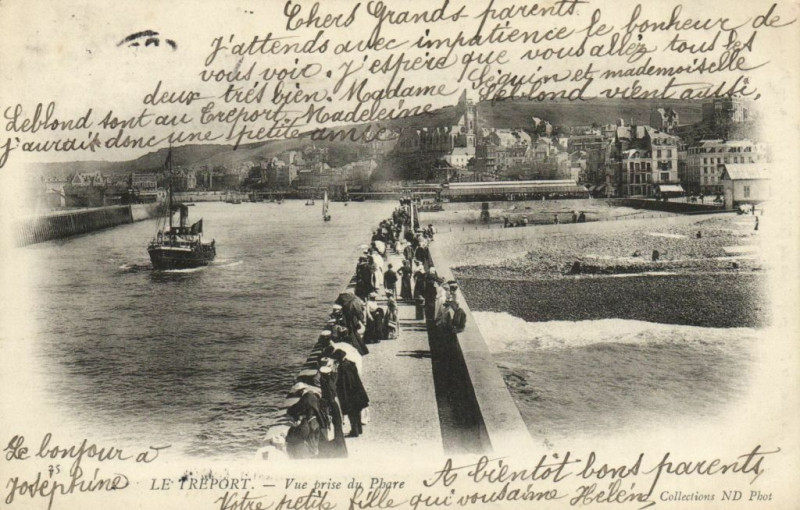 Chers Grands parents.
J'attends avec impatience le bonheur de
vous voir. J'espère que vous allez tous les
deux très bien. Madame Séguin et mademoiselle
Leblond sont au Tréport, Madeleine Leblond vient aussi,
j'aurai donc une petite amie.
Le bonjour à
Joséphine
A bientôt bons parents,
Votre petite fille qui vous aime Hélèn
75 LE TRÉPORT. — Vue prise du Phare
Collections ND Phot